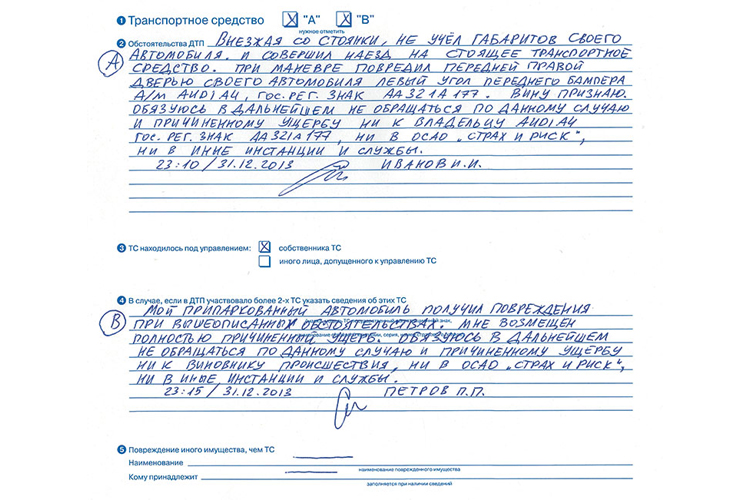 1 Транспортное средство [X] "А" [X] "В"
нужное отметить
2 Обстоятельства ДТП Выезжая со стоянки, не учёл габаритов своего
А автомобиля. и совершил наезд на стоящее транспортное
средство. При маневре повредил передней правой
дверью своего автомобиля левый угол переднего бампера
а/м AUDI A4, гос. рег. знак АА 321 А 177. Вину признаю.
Обязуюсь в дальнейшем не обращаться по данному случаю
и причиненному ущербу ни к владельцу AUDI A4
гос. рег. знак АА 321А 177, ни в ОСАО „Страх и риск",
ни в иные инстанции и службы.
23:10 / 31.12.2013 Иванов И.И.
3 ТС находилось под управлением: [X] собственника ТС
[ ] иного лица, допущенного к управлению ТС
4 В случае, если в ДТП участвовало более 2-х ТС указать сведения об этих ТС
В Мой припаркованный автомобиль получил повреждения
при вышеописанных обстоятельствах. Мне возмещен
полностью причиненный ущерб. Обязуюсь в дальнейшем
не обращаться по данному случаю и причиненному ущербу
ни к виновнику происшествия, ни в ОСАО „Страх и риск",
ни в иные инстанции и службы.
23:15 / 31.12.2013 Петров П.П.
5 Повреждение иного имущества, чем ТС
Наименование
наименование поврежденного имущества
Кому принадлежит
заполняется при наличии сведений